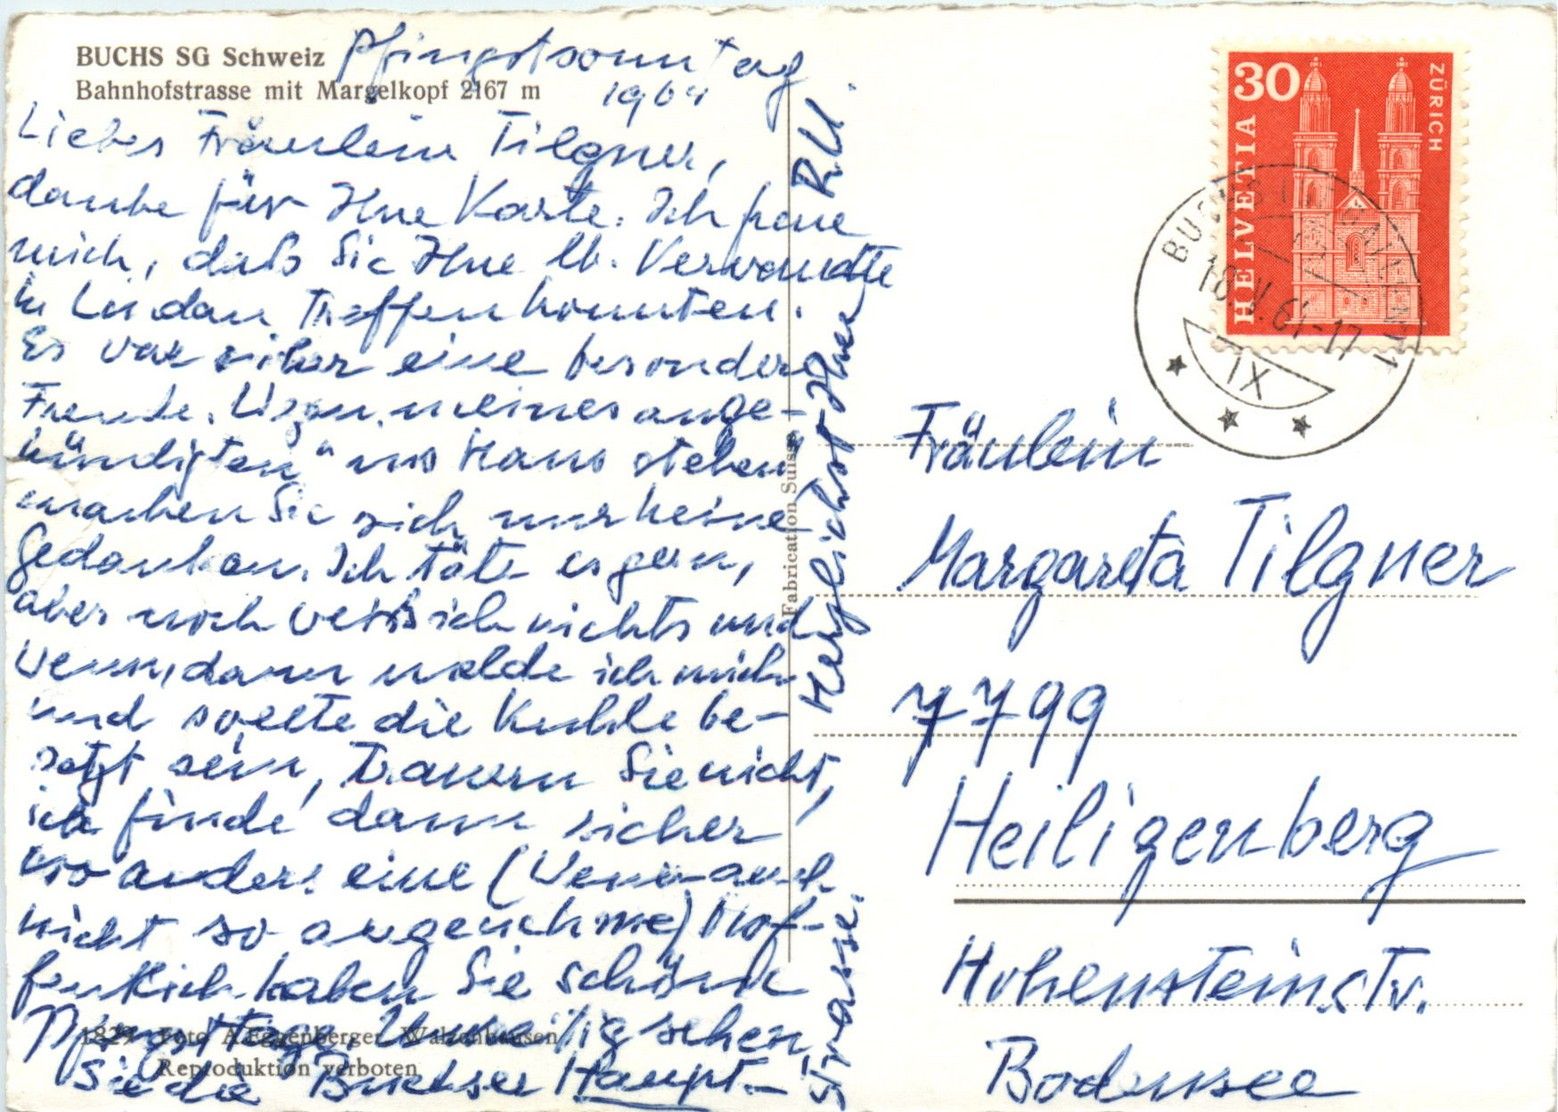 BUCHS SG Schweiz
Bahnhofstrasse mit Margelkopf 2167 m
Pfingstsonntag
1964
Liebes Fräulein Tilgner,
danke für Ihre Karte. Ich freue
mich, daß Sie Ihre lb. Verwandte
in Lindau treffen konnten.
Es war sicher eine besondere
Freude. Wegen meines ange-
kündigten " ins Haus stehen
machen Sie sich nur keine
Gedanken. Ich täte es gern,
aber noch weiss ich nichts und
wenn, dann melde ich mich
und sollte die Kuhle be-
setzt sein, trauern Sie nicht,
ich finde dann sicher
wo anders eine (wenn auch
nicht so angenehme) Hof-
fentlich haben Sie schöne
Pfingsttage. Umseitig sehen
Sie die Buchser Haupt-
strasse.
Herzlichst Ihre RU.
1829 Foto A. Eggenberger, Walzenhausen
Reproduktion verboten
Fabrication Suisse
HELVETIA 30
ZÜRICH
BUCHS (ST. GALLEN) 1
V. 64-17
XI
Fräulein
Margareta Tilgner
7799
Heiligenberg
Hohensteinstr.
Bodensee